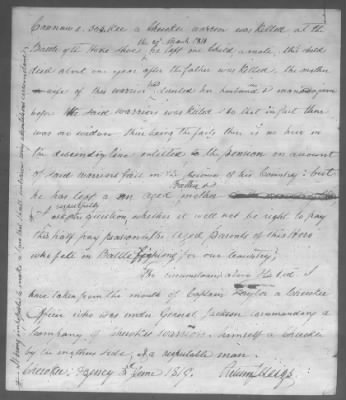 a Cherokee warrior was killed at the
the 27th March 1814
Battle of the Horse Shoe he left one Child a male, this child
died about one year after the father was killed, the mother
wife of this warrior had deserted her husband
before the said warrior was killed so that in fact there
was no widow this being the facts there is no heir in
the descending line entitled to the pension on account
of said warriors fall in the service of his Country: but
Father &
he has left an aged mother
respectfully
I ask the question, whether it will not be right to pay
this half pay pension to the aged Parents of this Hero
who fell in Battle fighting for our Country;
The circumstances above stated I
have taken from the mouth of Captain Taylor a Cherokee
Officer who was under General Jackson commanding a
Company of Cherokee warriors himself a Cherokee
by the mothers side, & a respectable man.
Cherokee Agency 3d June 1819. Return J. Meigs